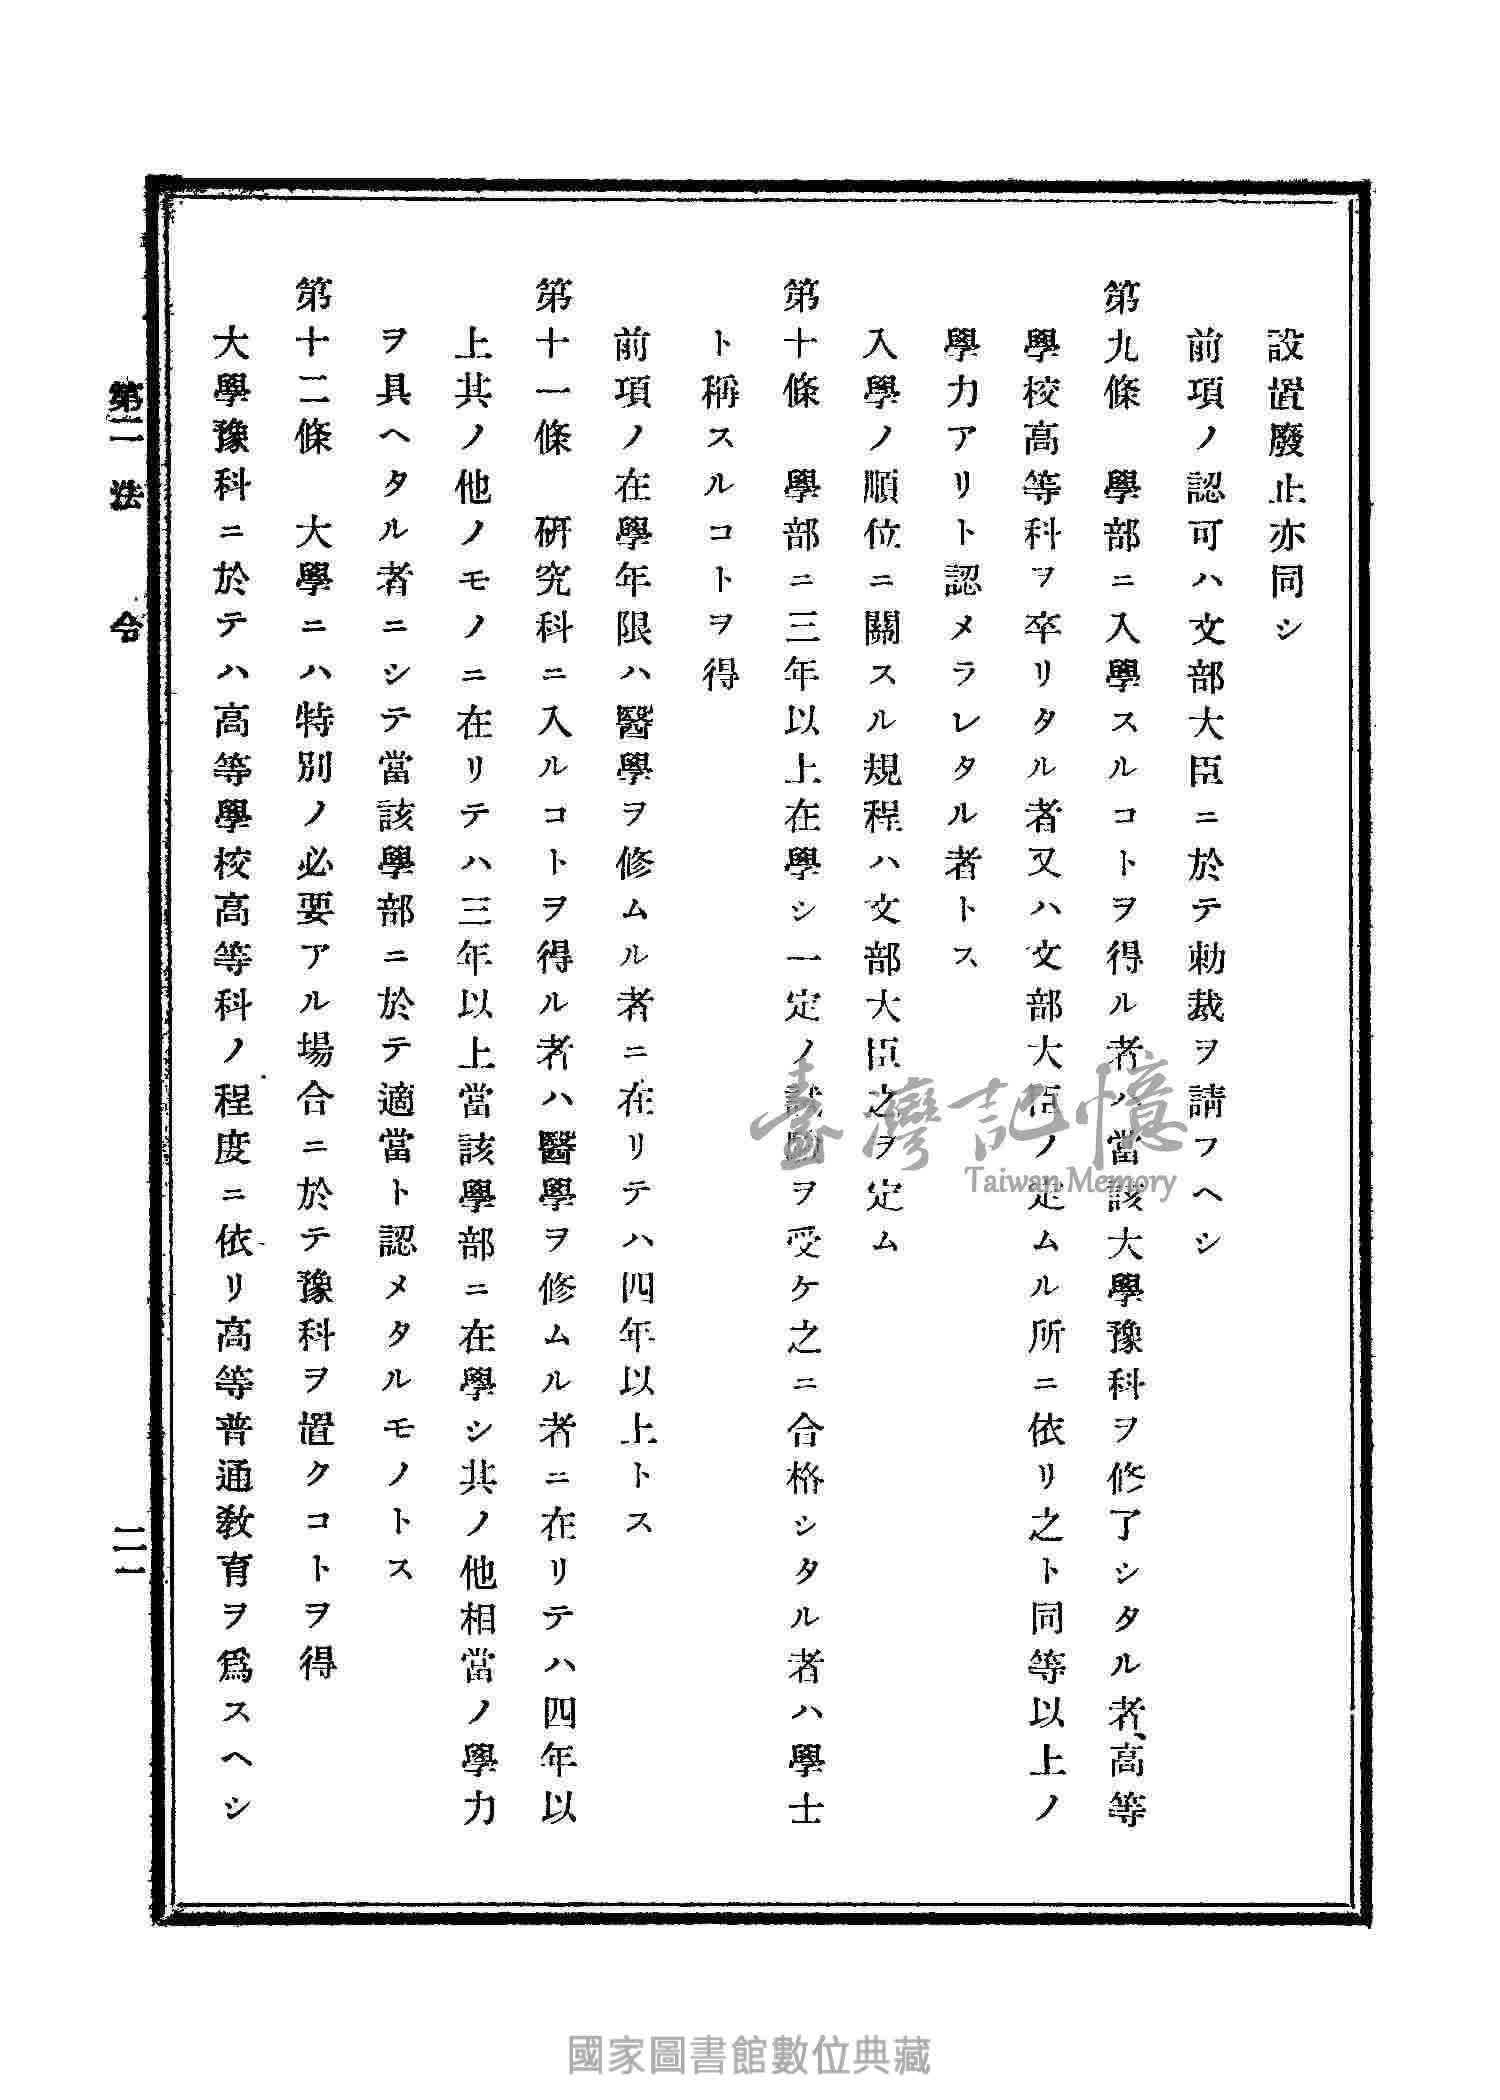 設置廢止亦同シ
前項ノ認可ハ文部大臣ニ於テ勅裁ヲ請フヘシ
第九條　學部ニ入學スルコトヲ得ル者ハ當該大學豫科ヲ修了シタル者、高等
學校高等科ヲ卒リタル者又ハ文部大臣ノ定ムル所ニ依リ之ト同等以上ノ
學力アリト認メラレタル者トス
入學ノ順位ニ關スル規程ハ文部大臣之ヲ定ム
第十條　學部ニ三年以上在學シ一定ノ試驗ヲ受ケ之ニ合格シタル者ハ學士
ト稱スルコトヲ得
前項ノ在學年限ハ醫學ヲ修ムル者ニ在リテハ四年以上トス
第十一條　研究科ニ入ルコトヲ得ル者ハ醫學ヲ修ムル者ニ在リテハ四年以
上其ノ他ノモノニ在リテハ三年以上當該學部ニ在學シ其ノ他相當ノ學力
ヲ具ヘタル者ニシテ當該學部ニ於テ適當ト認メタルモノトス
第十二條　大學ニハ特別ノ必要アル場合ニ於テ豫科ヲ置クコトヲ得
大學豫科ニ於テハ高等學校高等科ノ程度ニ依リ高等普通教育ヲ爲スヘシ
第二　法　令
二一
臺灣記憶
Taiwan Memory
國家圖書館數位典藏